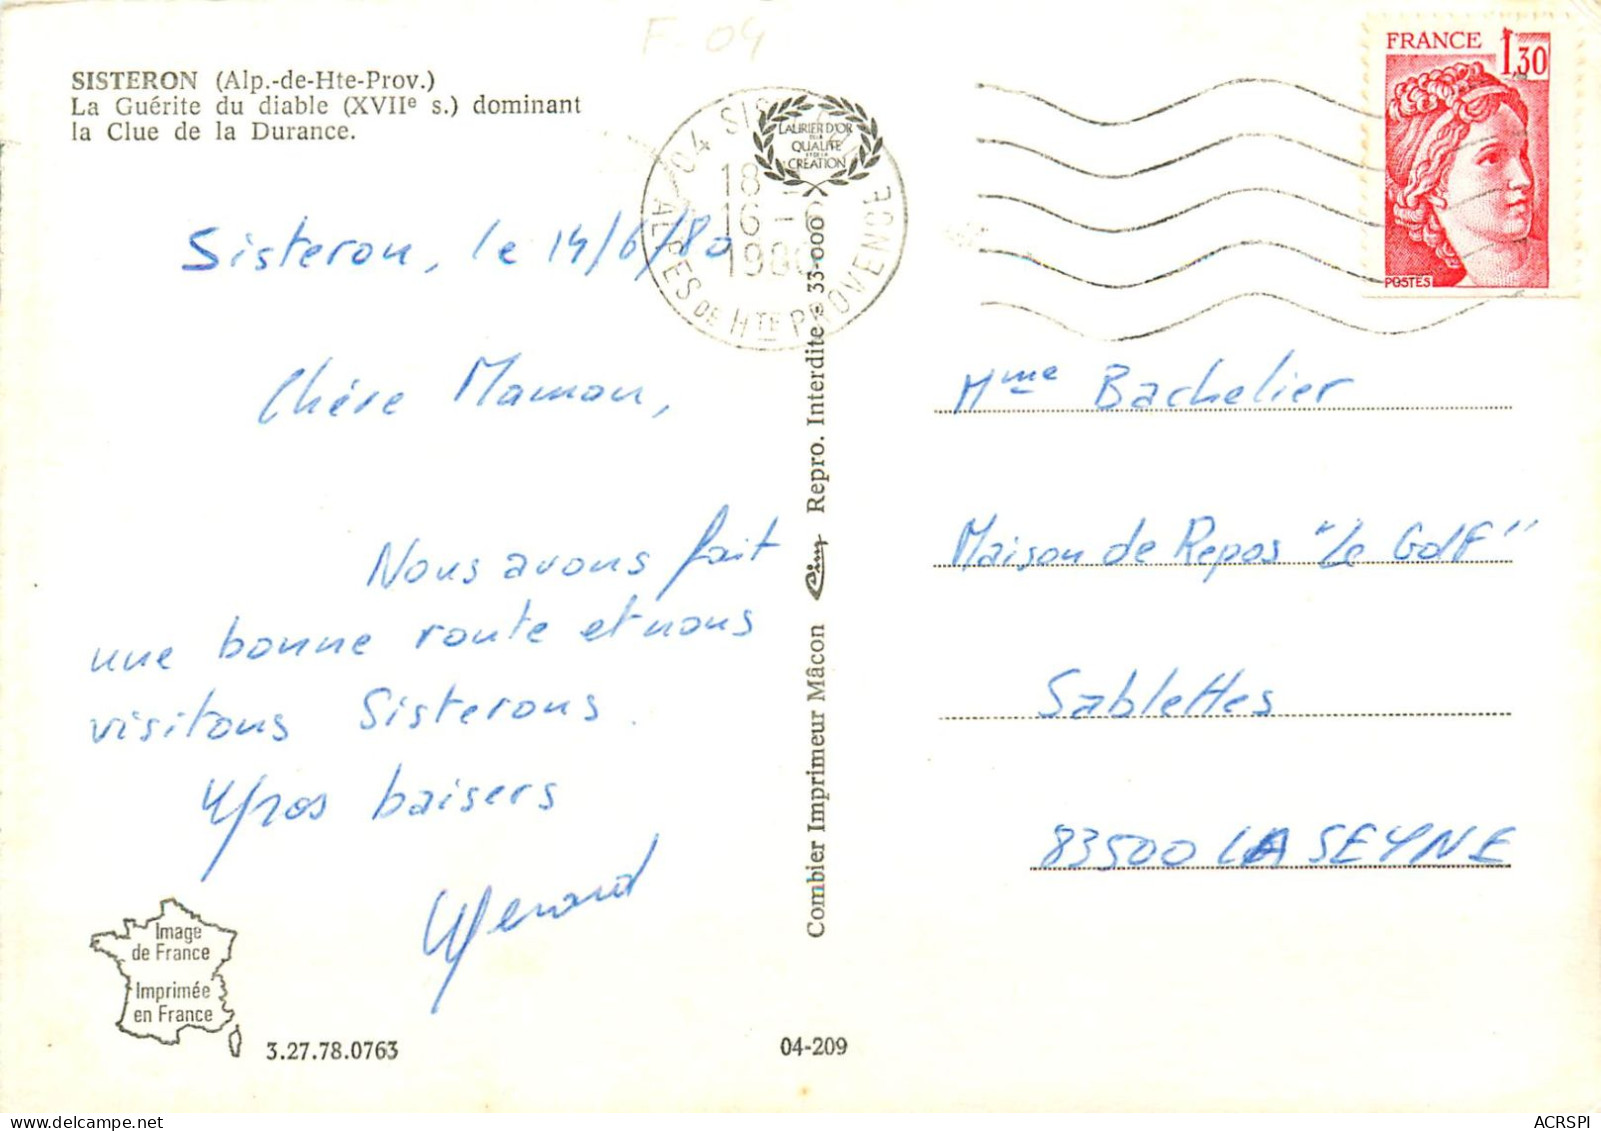 F. 04
SISTERON (Alp.-de-Hte-Prov.)
La Guérite du diable (XVIIe s.) dominant
la Clue de la Durance.
Sisteron, le 14/6/80
Chère Maman,
Nous avons fait
une bonne route et nous
visitons Sisterons.
Gros baisers
Gérard
Image
de France
Imprimée
en France
3.27.78.0763
04-209
Combier Imprimeur Mâcon Cim Repro. Interdite - 33-000
LAURIER D'OR
DE LA
QUALITE
ET DE LA
CRÉATION
04 SIS
18
16 - 6
1980
ALPES DE HTE PROVENCE
FRANCE 1,30
POSTES
Mme Bachelier
Maison de Repos "Le Golf"
Sablettes
83500 LA SEYNE
ACRSPI